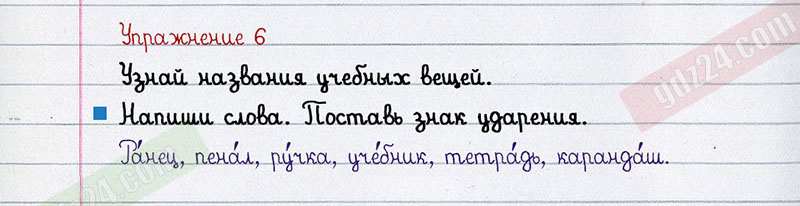 Упражнение 6
Узнай названия учебных вещей.
Напиши слова. Поставь знак ударения.
Ра́нец, пена́л, ру́чка, уче́бник, тетра́дь, каранда́ш.
gdz24.com
gdz24.com